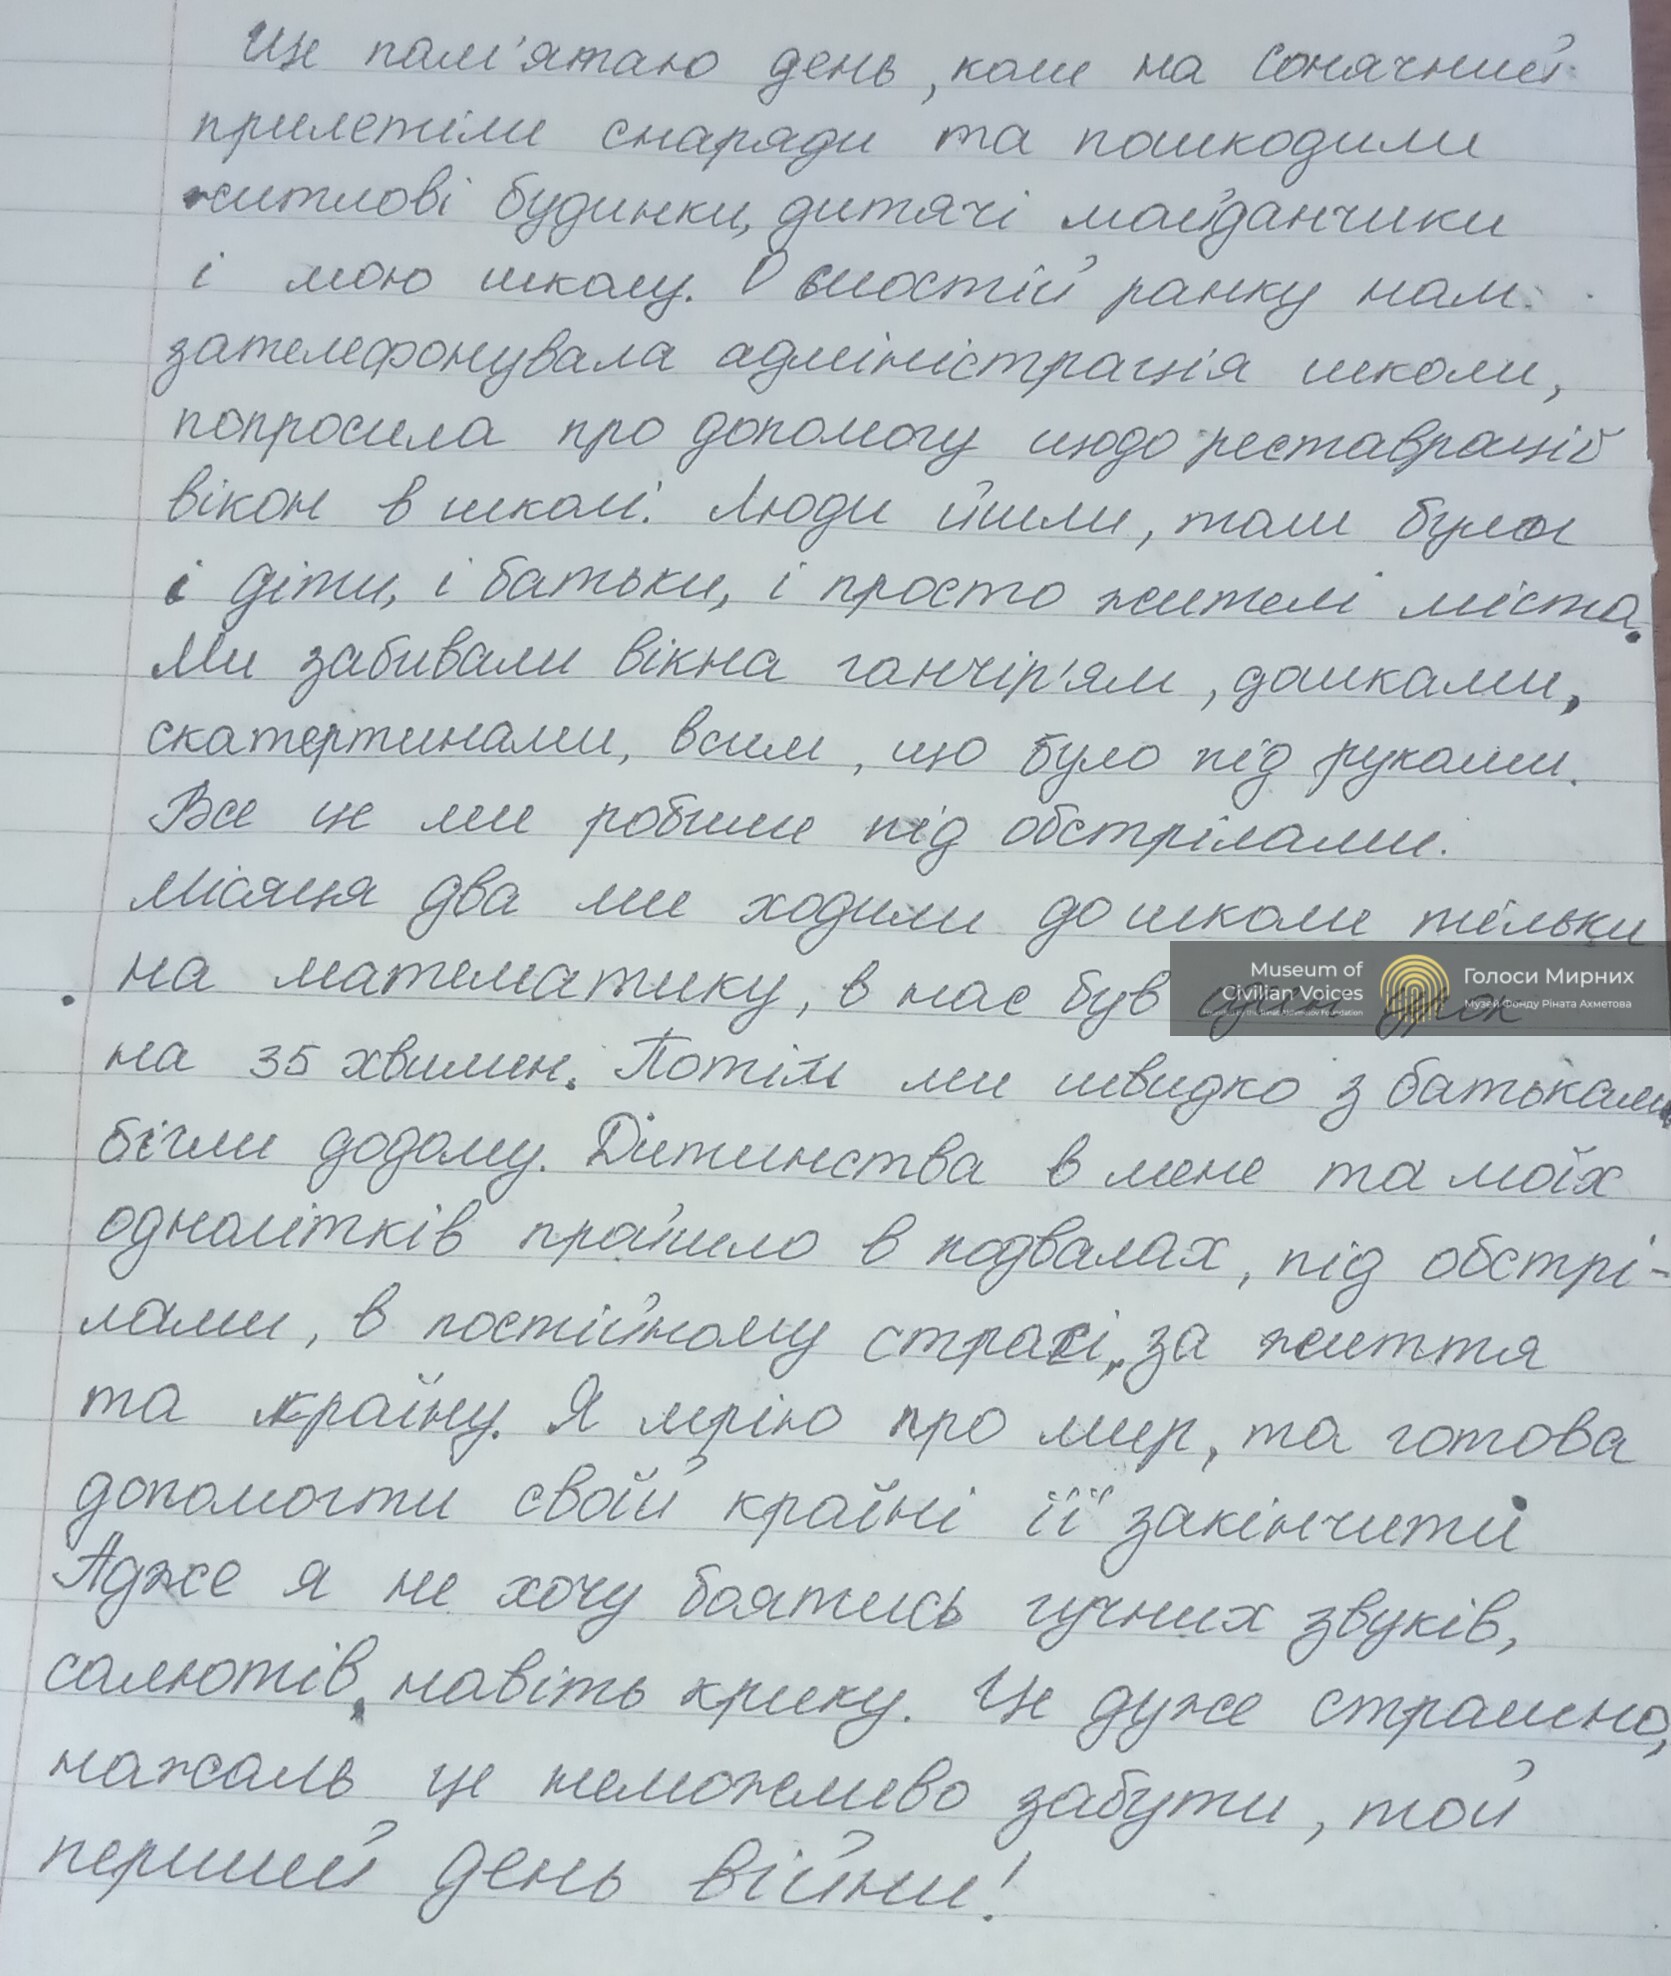 Ще пам'ятаю день, коли на Сонячний
прилетіли снаряди та пошкодили
житлові будинки, дитячі майданчики
і мою школу. О шостій ранку нам
зателефонувала адміністрація школи,
попросила про допомогу щодо реставрацій
вікон в школі. Люди йшли, там були
і діти, і батьки, і просто жителі міста.
Ми забивали вікна ганчір'ям, дошками,
скатертинами, всим, що було під руками.
Все це ми робили під обстрілами.
Місяця два ми ходили до школи тільки
на математику, в нас був один урок
Museum of
Civilian Voices
Голоси Мирних
Музей Фонду Ріната Ахметова
на 35 хвилин. Потім ми швидко з батьками
бігли додому. Дитинства в мене та моїх
однолітків пройшло в подвалах, під обстрі-
лами, в постійному страсі, за життя
та країну. Я мрію про мир, та готова
допомогти своїй країні її закінчити
Адже я не хочу боятись гучних звуків,
салютів, навіть крику. Це дуже страшно,
нажаль це неможливо забути, той
перший день війни!